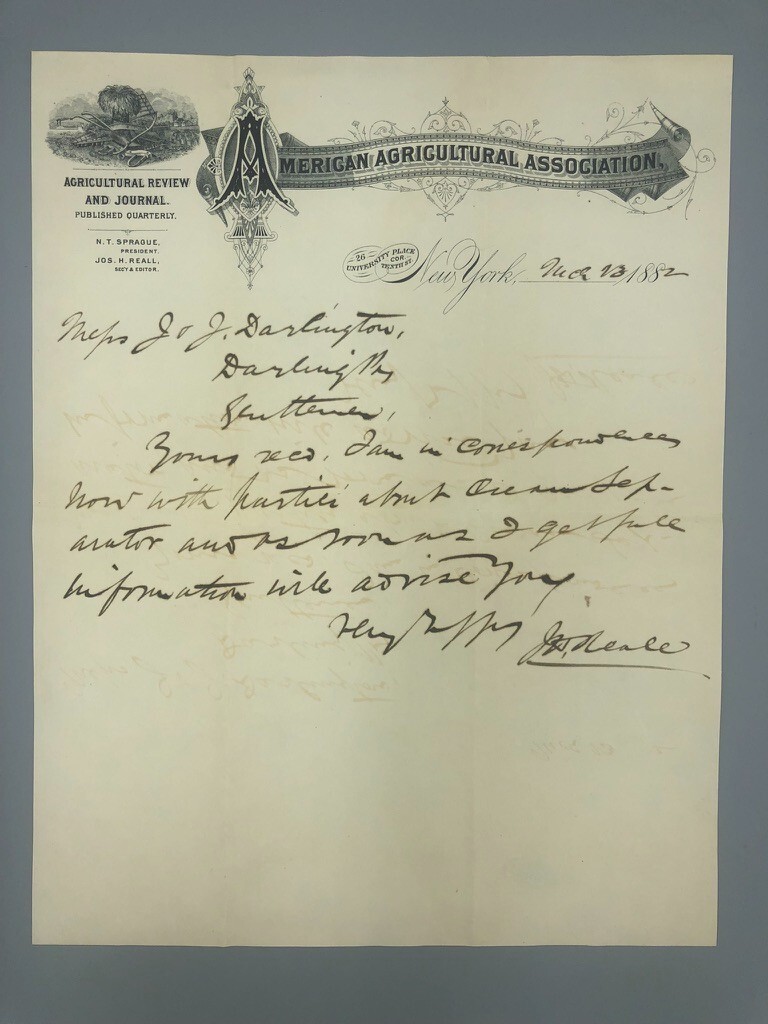 AGRICULTURAL REVIEW
AND JOURNAL.
PUBLISHED QUARTERLY.
N. T. SPRAGUE,
PRESIDENT.
JOS. H. REALL,
SEC'Y & EDITOR.
AMERICAN AGRICULTURAL ASSOCIATION,
26
UNIVERSITY PLACE
COR.
TENTH ST.
New York, Mch 13 1882
Mess J & J. Darlington,
Darling Pa
Gentlemen,
Yours recd. I am in correspondence
now with parties about Cream Sep-
arator and as soon as I get full
information will advise you
Very Resply
Jos. H. Reall